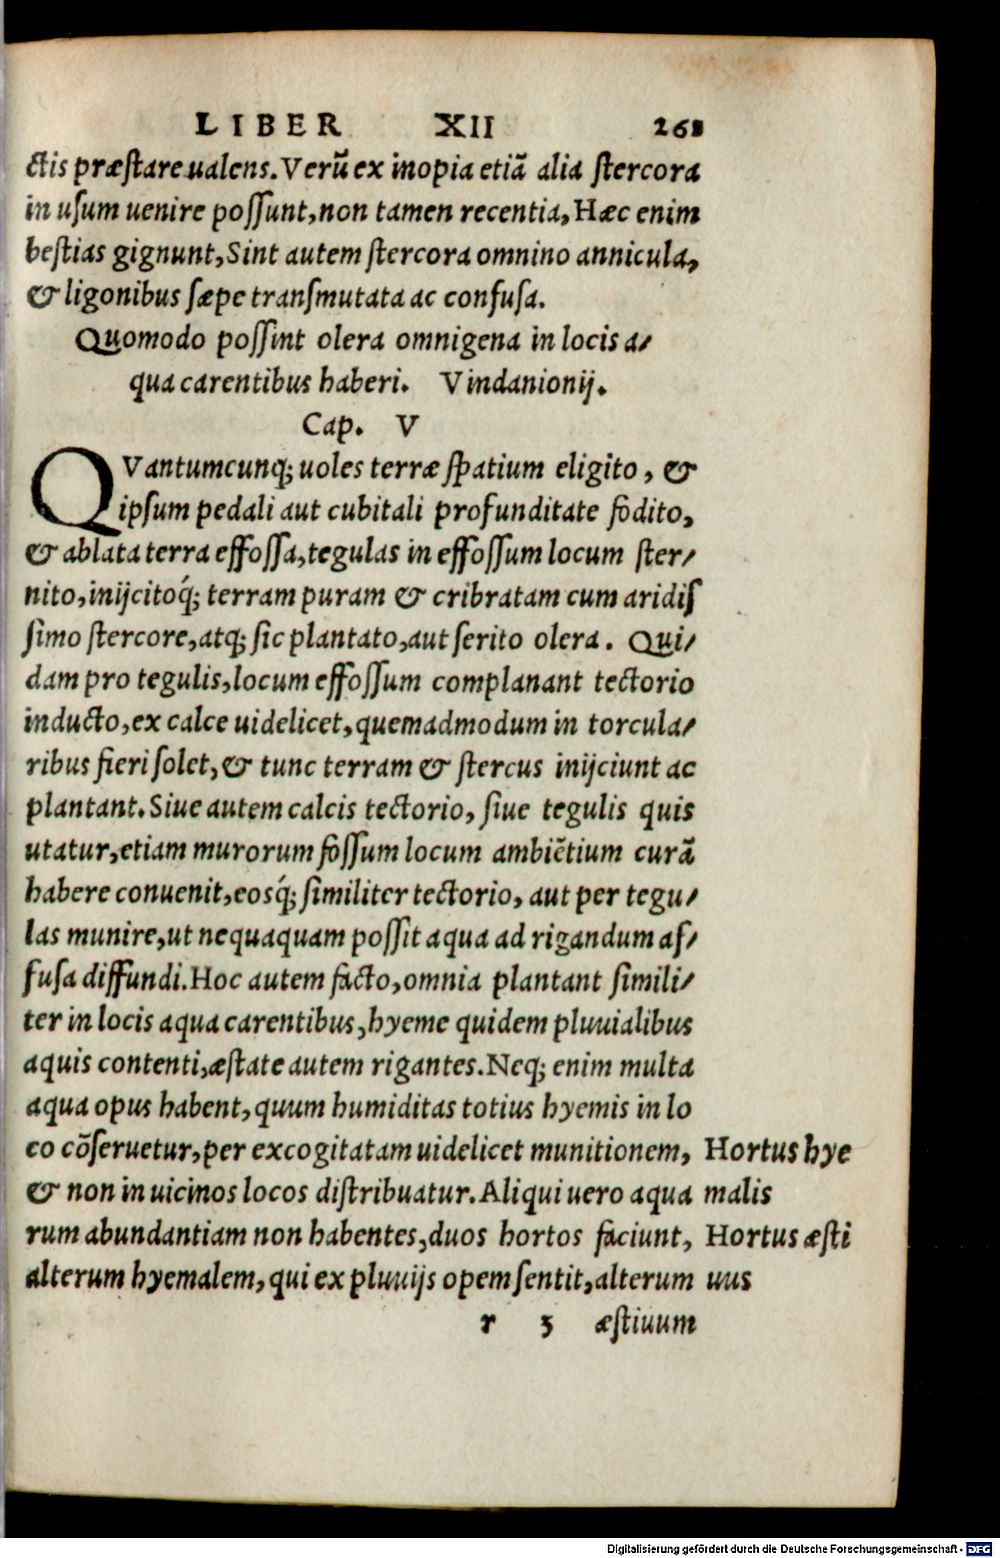 LIBER XII 261
ctis præſtare ualens. Verũ ex inopia etiã alia ſtercora
in uſum uenire poſſunt, non tamen recentia, Hæc enim
beſtias gignunt, Sint autem ſtercora omnino annicula,
& ligonibus ſæpe tranſmutata ac confuſa.
Quomodo poſſint olera omnigena in locis a/
qua carentibus haberi. Vindanionij.
Cap. V
QVantumcunq; uoles terræ ſpatium eligito, &
ipſum pedali aut cubitali profunditate fodito,
& ablata terra effoſſa, tegulas in effoſſum locum ſter/
nito, inijcitoq́; terram puram & cribratam cum aridiſ
ſimo ſtercore, atq; ſic plantato, aut ſerito olera. Qui/
dam pro tegulis, locum effoſſum complanant tectorio
inducto, ex calce uidelicet, quemadmodum in torcula/
ribus fieri ſolet, & tunc terram & ſtercus inijciunt ac
plantant. Siue autem calcis tectorio, ſiue tegulis quis
utatur, etiam murorum foſſum locum ambiẽtium curã
habere conuenit, eosq́; ſimiliter tectorio, aut per tegu/
las munire, ut nequaquam poſſit aqua ad rigandum af/
fuſa diffundi. Hoc autem facto, omnia plantant ſimili/
ter in locis aqua carentibus, hyeme quidem pluuialibus
aquis contenti, æſtate autem rigantes. Neq; enim multa
aqua opus habent, quum humiditas totius hyemis in lo
co cõſeruetur, per excogitatam uidelicet munitionem, Hortus hye
& non in uicinos locos diſtribuatur. Aliqui uero aqua malis
rum abundantiam non habentes, duos hortos faciunt, Hortus æſti
alterum hyemalem, qui ex pluuijs opem ſentit, alterum uus
r 3 æſtiuum
Digitalisierung gefördert durch die Deutsche Forschungsgemeinschaft - DFG